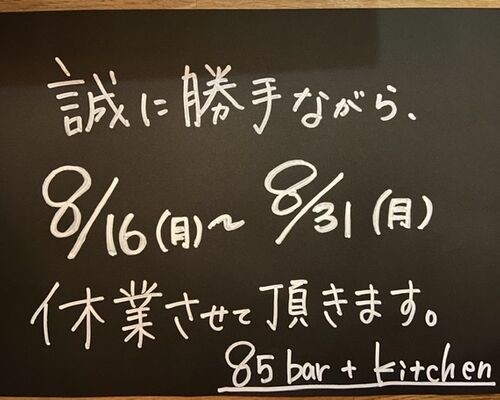 誠に勝手ながら、
8/16(月)～8/31(月)
休業させて頂きます。
85 bar + kitchen